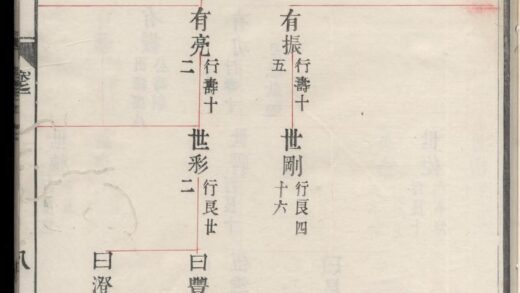 有振 行壽十五
世剛 行良四十六
有亮 行壽十二
世彩 行良廿二
曰豐
曰澄
八